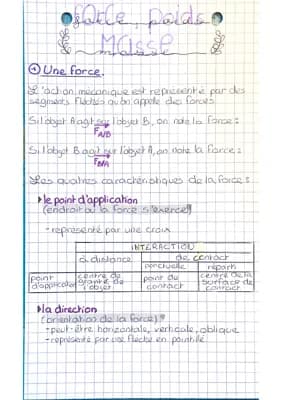 force, poids
Masse
① Une force.
L'action mécanique est représenté par des
segments fléchés qu'on appelle des forces
Si l'objet A agit sur l'objet B, on note la force :
F A/B
Si l'objet B agit sur l'objet A, on note la force :
F B/A
Les quatres caractéristiques de la force :
▸ le point d'application
(endroit où la force s'exerce)
- représenté par une croix
INTERACTION
à distance de contact
ponctuelle réparti
point d'application centre de gravité de l'objet point de contact centre de la surface de contact
▸ la direction
(orientation de la force)
- peut-être horizontale, verticale, oblique
- représenté par une flèche en pointillé